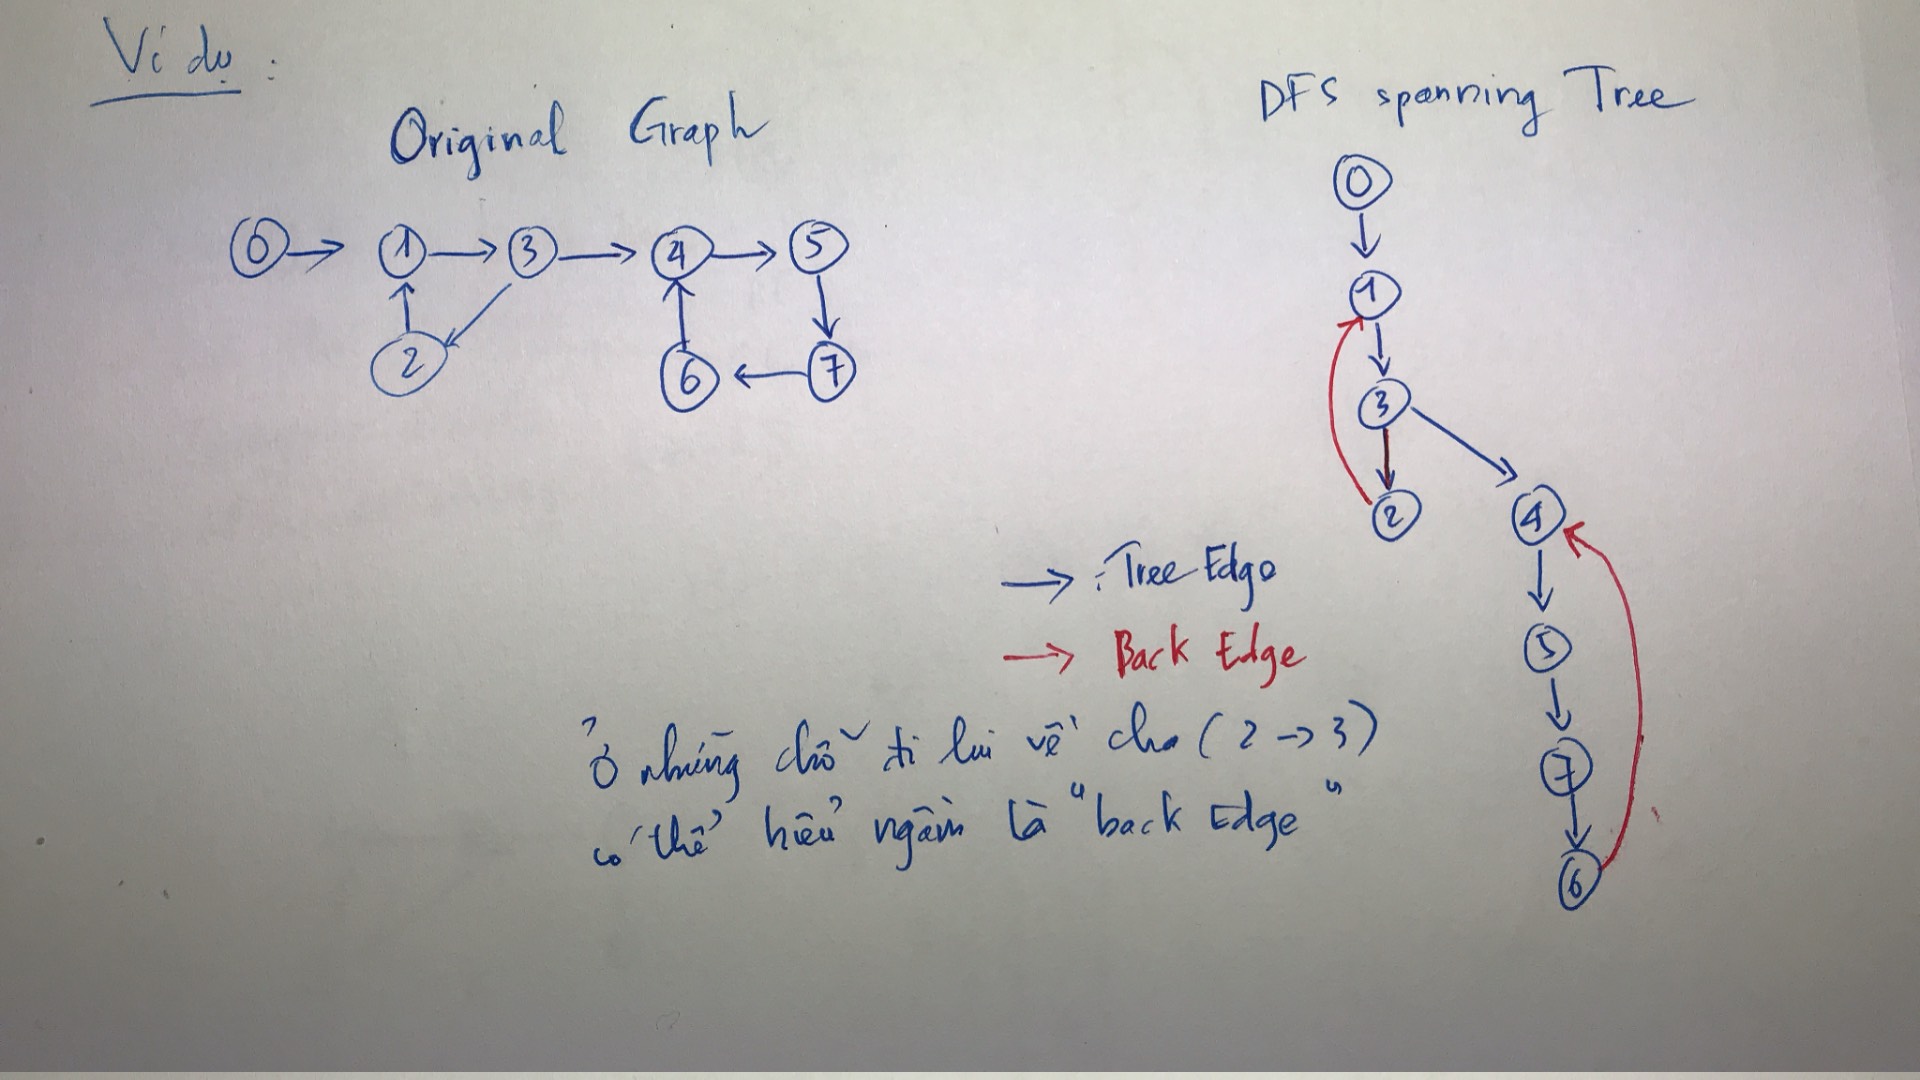 Ví dụ :
Original Graph
0 → 1 → 3 → 4 → 5
2 6 ← 7
DFS spanning Tree
0
1
3
2 4
5
7
6
→ : Tree Edge
→ Back Edge
Ở những chỗ đi lui về cha ( 2 → 3 )
có thể hiểu ngầm là "back Edge"